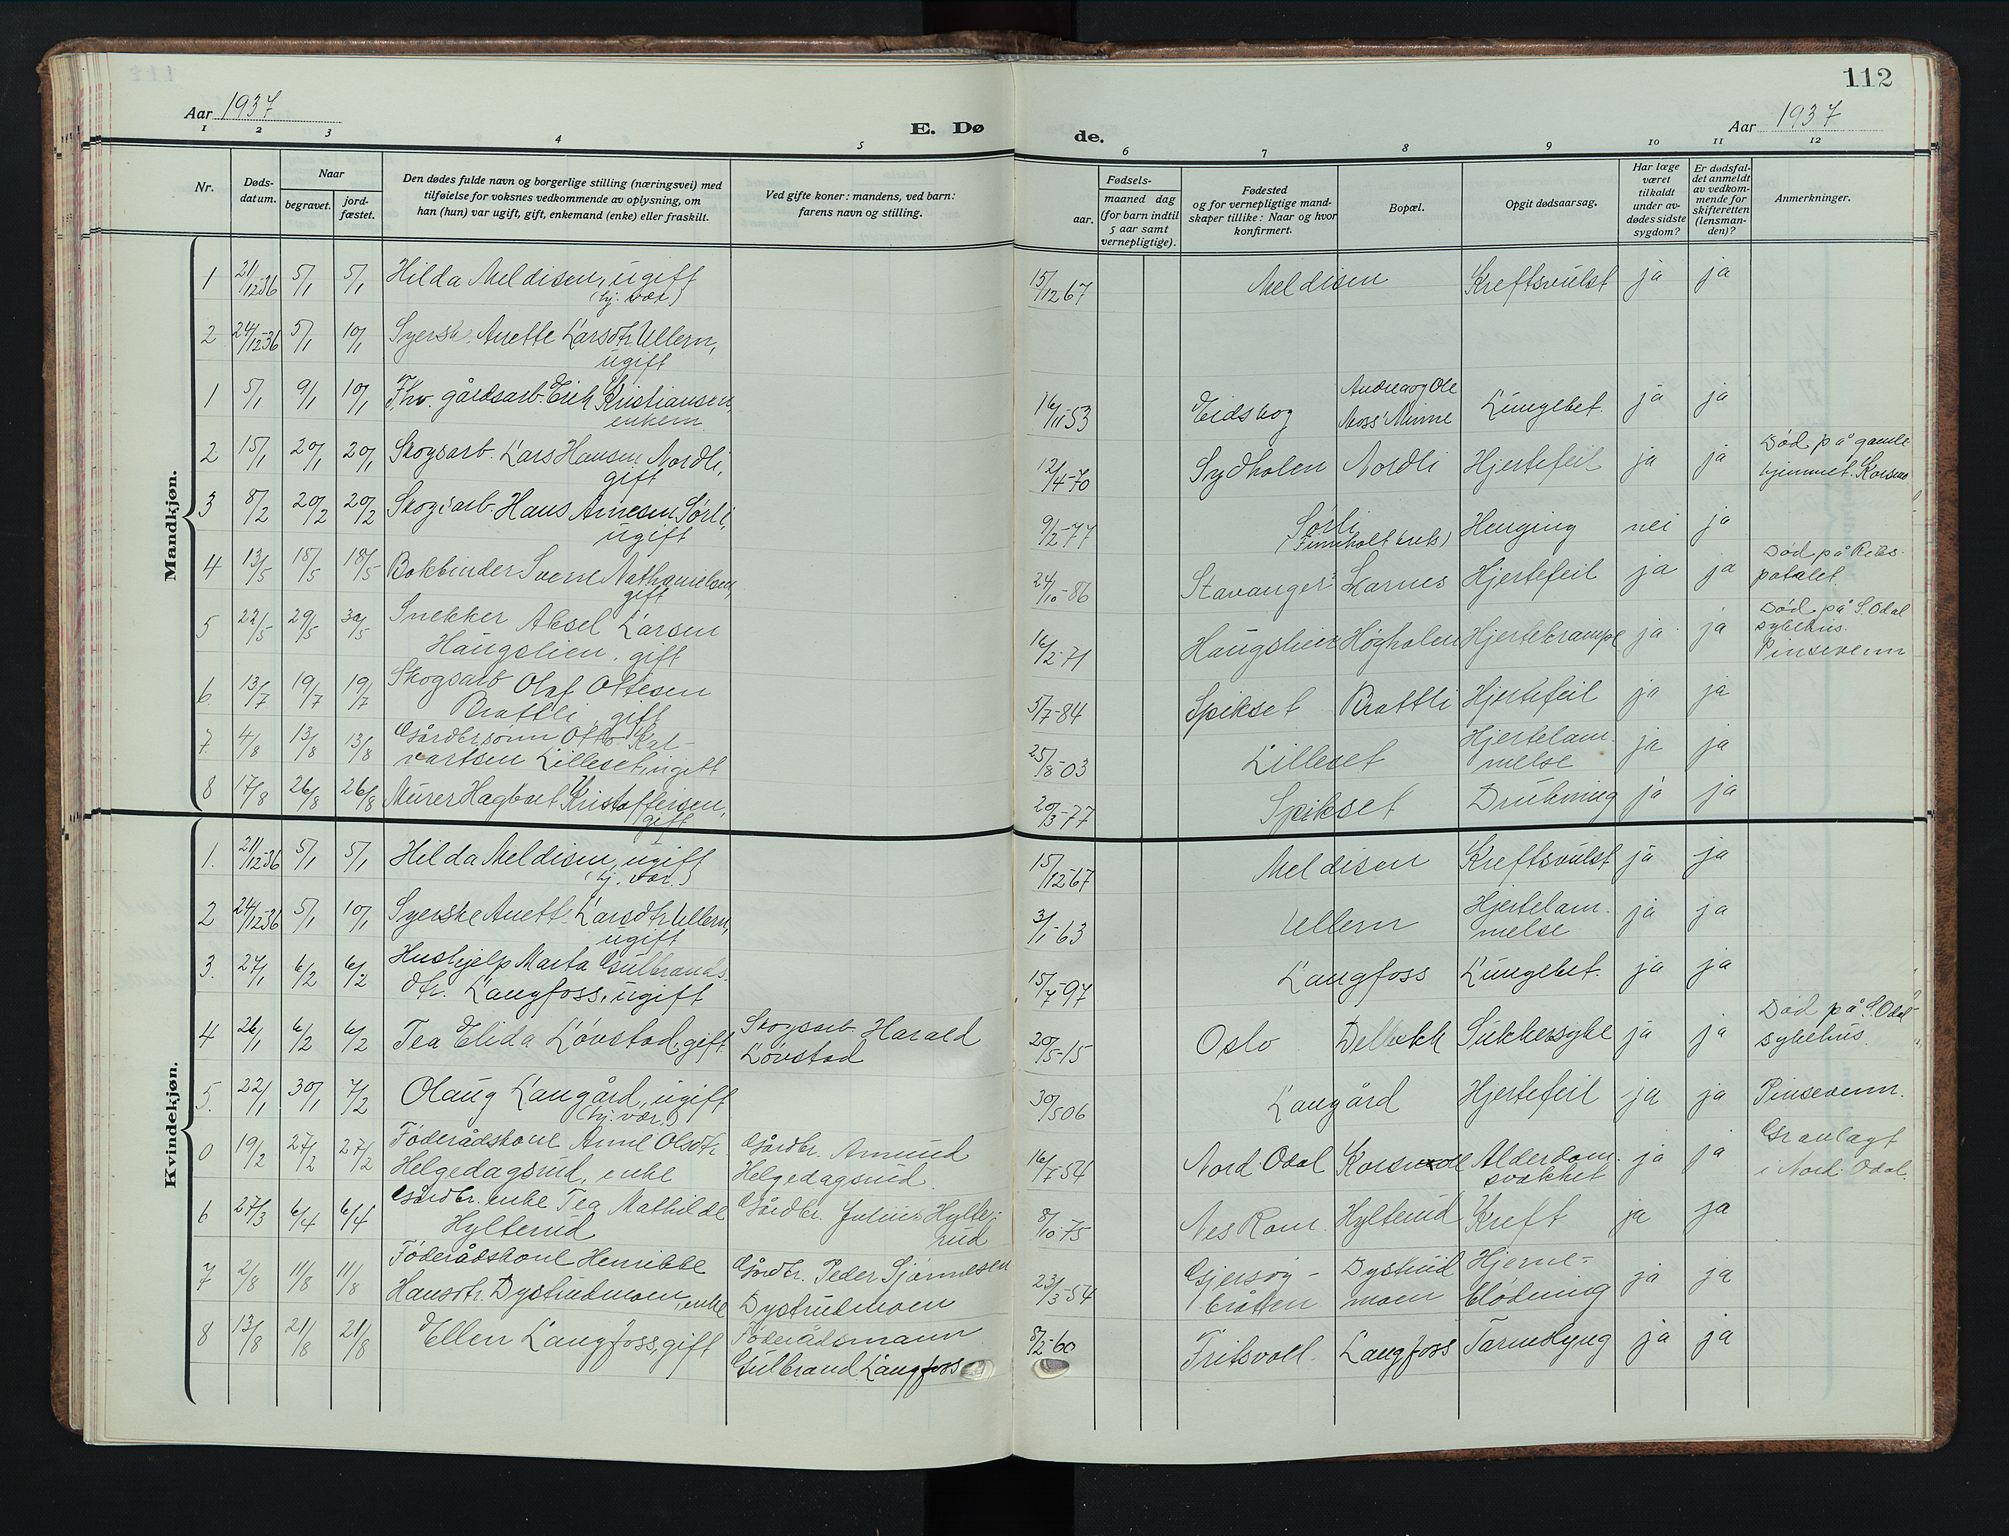 112
Aar 1937
E. Dø
de.
Aar 1937
1 2 3 4 5 6 7 8 9 10 11 12
Nr.
Døds-
datum.
Naar
begravet.
jord-
fæstet.
Den dødes fulde navn og borgerlige stilling (næringsvei) med
tilføielse for voksnes vedkommende av oplysning, om
han (hun) var ugift, gift, enkemand (enke) eller fraskilt.
Ved gifte koner: mandens, ved barn:
farens navn og stilling.
Fødsels-
aar.
maaned dag
(for barn indtil
5 aar samt
vernepligtige).
Fødested
og for vernepligtige mand-
skaper tillike: Naar og hvor
konfirmert.
Bopæl.
Opgit dødsaarsag.
Har læge
været
tilkaldt
under av-
dødes sidste
sygdom?
Er dødsfal-
det anmeldt
av vedkom-
mende for
skifteretten
(lensman-
den)?
Anmerkninger.
Mandkjøn.
1 21/12-36 5/1 5/1 Hilda Meldisen, ugift 15/12 67 Meldisen Kreftsvulst ja ja
(hj. vær.)
2 24/12-36 5/1 10/1 Syersk. Anette Larsdtr. Ullern,
ugift
1 5/1 9/1 10/1 Fhv. gårdsarb. Erik Kristiansen, 16/11-53 Eidskog Lungebet. ja ja
enkem.
2 15/1 20/1 20/1 Skogsarb. Lars Hansen Nordli, 12/4-70 Sydholen Nordli Hjertefeil ja ja Død på gamle
gift hjemmet. Korsmo
3 8/2 20/2 20/2 Skogsarb. Hans Arnesen Sørli, 9/2-77 Sørli Henging nei ja
ugift
4 13/5 18/5 18/5 Bokbinder Svenn Nathanielsen, 24/10-86 Stavanger Hjertefeil ja ja Død på Riks-
gift
5 22/5 29/5 30/5 Snekker Aksel Larsen 16/2-71 Haugslien Høgholen Hjertekrampe ja ja Død på S. Odal
Haugslien, gift sykehus.
Pinsevenn
6 13/7 19/7 19/7 Skogsarb Olaf Ottesen 5/7-84 Spikset Brattli Hjertefeil ja ja
Brattli, gift
7 4/8 13/8 13/8 Gårdbr.sønn Otto Kal- 25/8-03 Lilleset Hjertelam- ja ja
vartsen Lilleset, ugift melse
8 17/8 26/8 26/8 Murer Hagbart Kristoffersen, 20/3-77 Spikset Drukning ja ja
gift
Kvindekjøn.
1. 21/12-36 5/1 5/1 Hilda Meldisen, ugift 15/12-67 Meldisen Kreftsvulst ja ja
(hj. vær.)
2 24/12-36 5/1 10/1 Syerske Anette Larsdtr. Ullern, 3/1-63 Ullern Hjertelam- ja ja
ugift melse
3. 27/1 6/2 6/2 Hushjelp Marta Gulbrands- 15/7-97 Langfoss Lungebet. ja ja
dtr. Langfoss, ugift
4 26/1 6/2 6/2 Tea Elida Løvstad, gift Skogsarb Harald 20/5-15 Oslo Sukkersyke ja ja Død på S. Odal
Løvstad sykehus.
5. 22/1 30/1 7/2 Olaug Langård, ugift 30/5 06 Langård Hjertefeil ja ja Pinsevenn.
(hj. vær.)
0 19/2 27/2 27/2 Føderådskone Anne Olsdtr. Gårdbr. Amund 16/7-54 Nord-Odal Alderdom- ja ja Gravlagt
Helgedagsrud, enke Helgedagsrud. svakhet i Nord-Odal.
6 27/3 6/4 6/4 Gårdbr. enke Tea Mathilde Gårdbr. Julius Hylte- 8/10-75 Nes Rom. Hylterud Kreft ja ja
Hylterud rud
7 2/8 11/8 11/8 Føderådskone Henrikke Gårdbr. Peder Sjønnesen 23/3-54 Gjersøy- Dystrud Hjerne- ja ja
Hansdtr. Dystrudmoen, enke Dystrudmoen bråten moen blødning
8 13/8 21/8 21/8 Ellen Langfoss, gift Føderådsmann 8/2-60 Fritsvoll Langfoss Tarmslyng ja ja
Gulbrand Langfoss